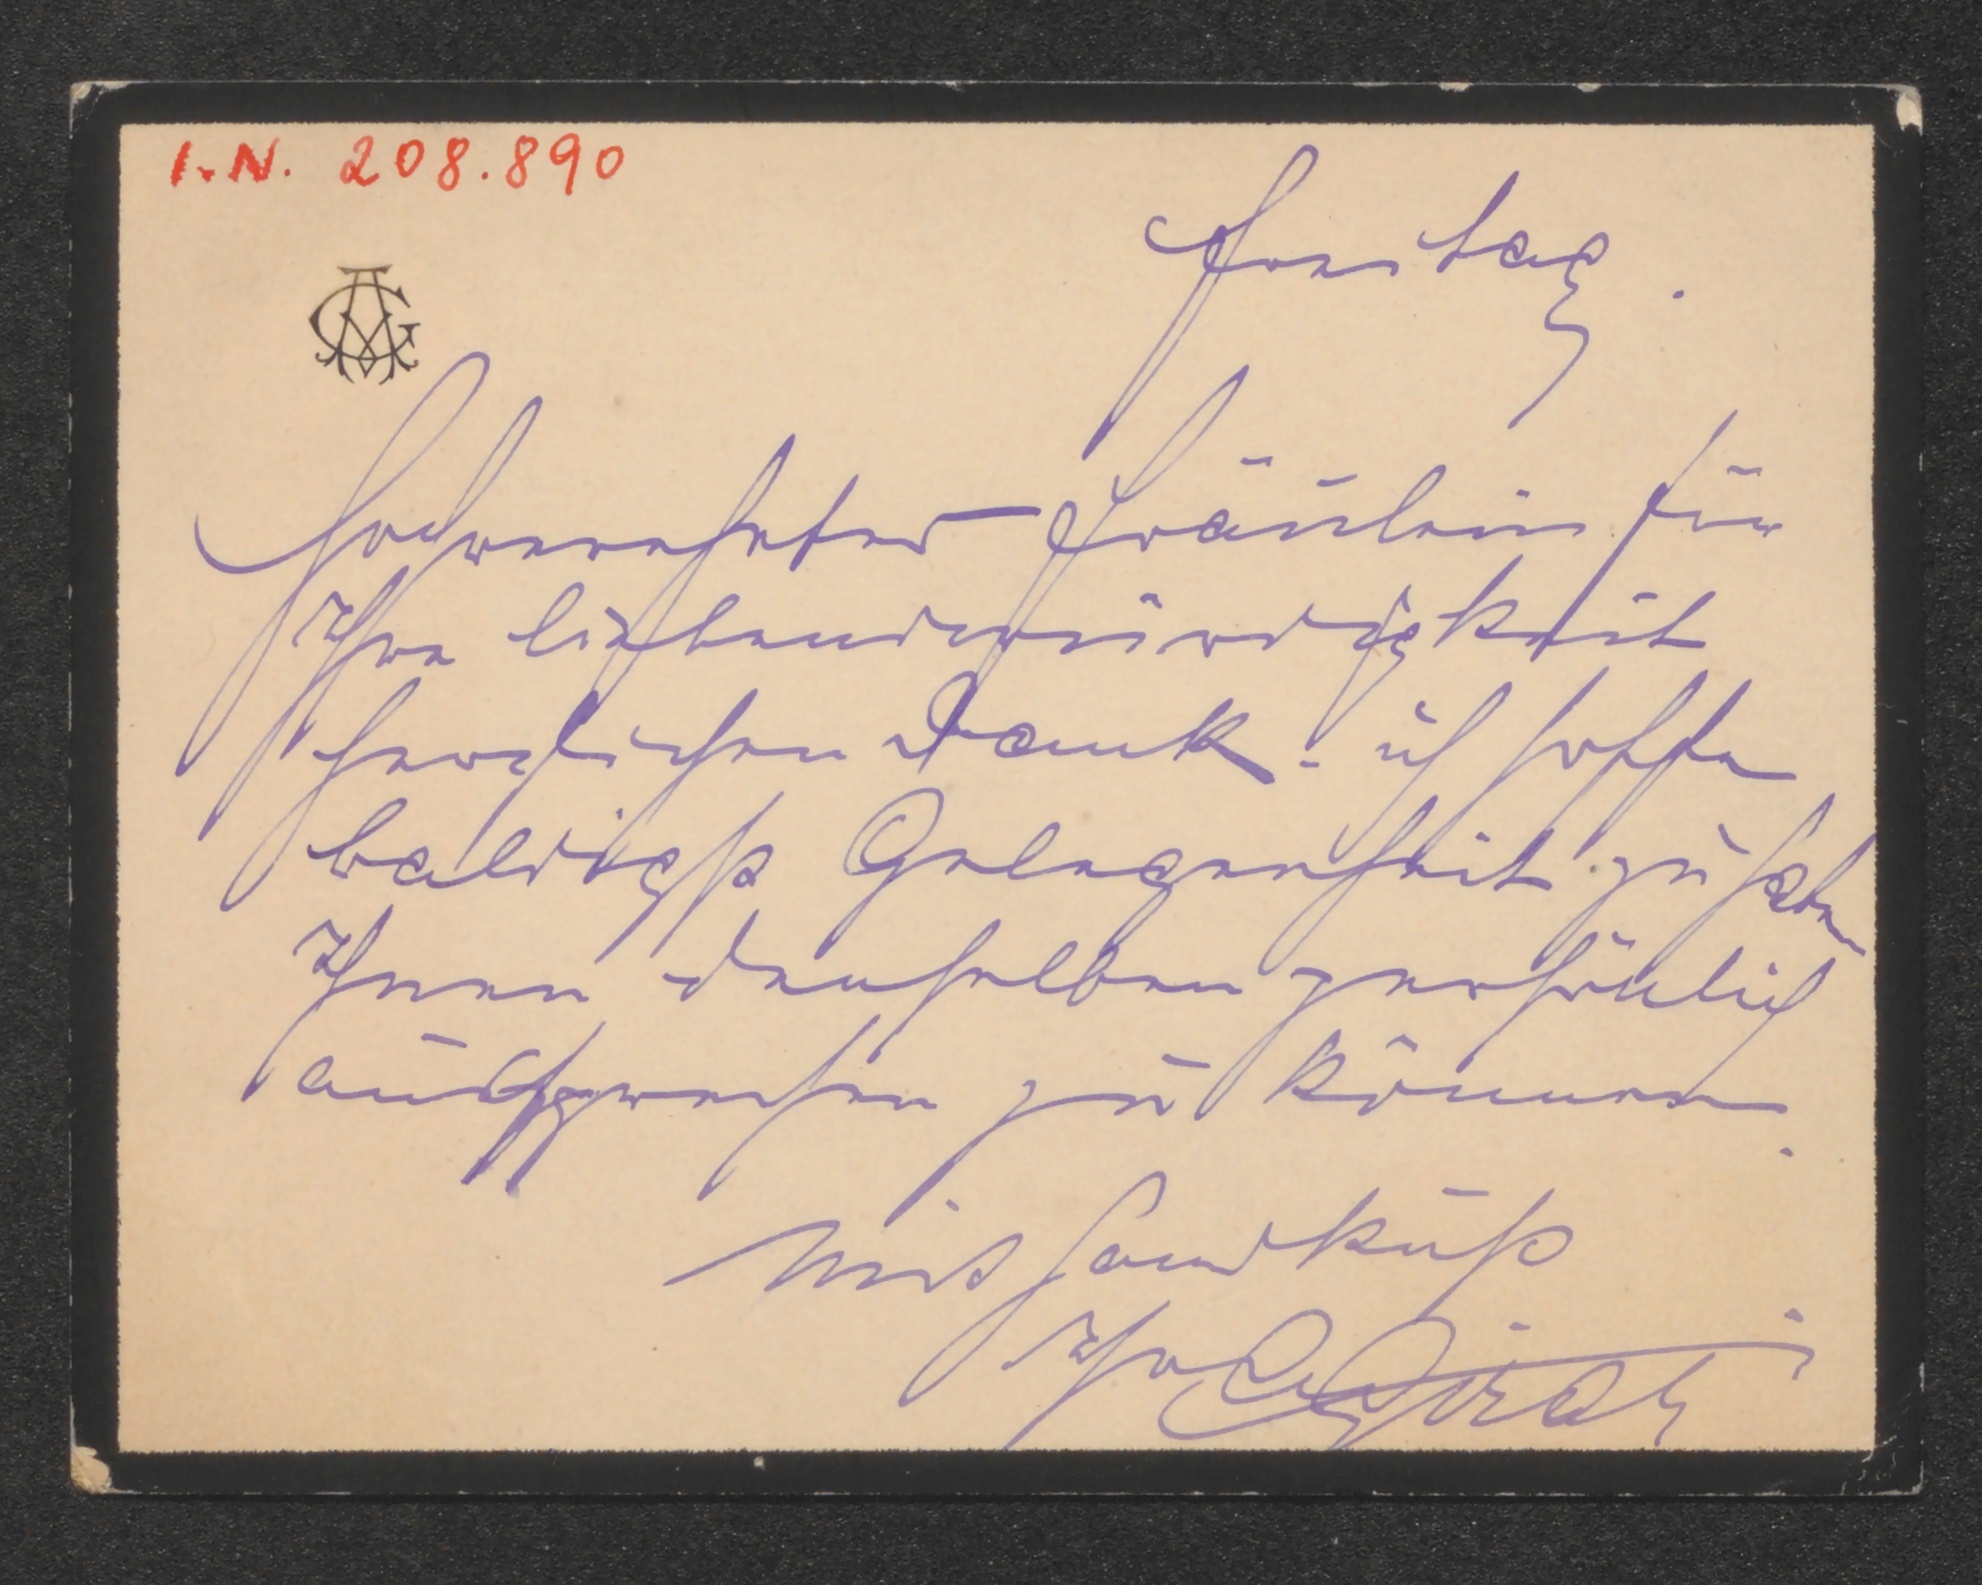 I.N. 208.890
Freitag.
Hochverehrtes Fräulein für
Ihre liebenswürdigkeit
herzlichen Dank. ich hoffe
baldigst Gelegenheit zu haben
Ihnen denselben persönlich
aussprechen zu können.
Mit Handkuß
Ihr Girardi